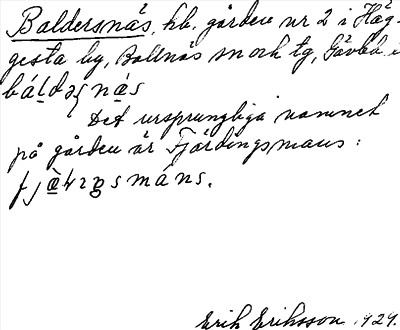 Baldersnäs, hb. gården nr 2 i Häg-
gesta by, Bollnäs sn och tg, Gävleb i
Det ursprungliga namnet
på gården är Fjärdingsmans:
Erik Eriksson 1929.